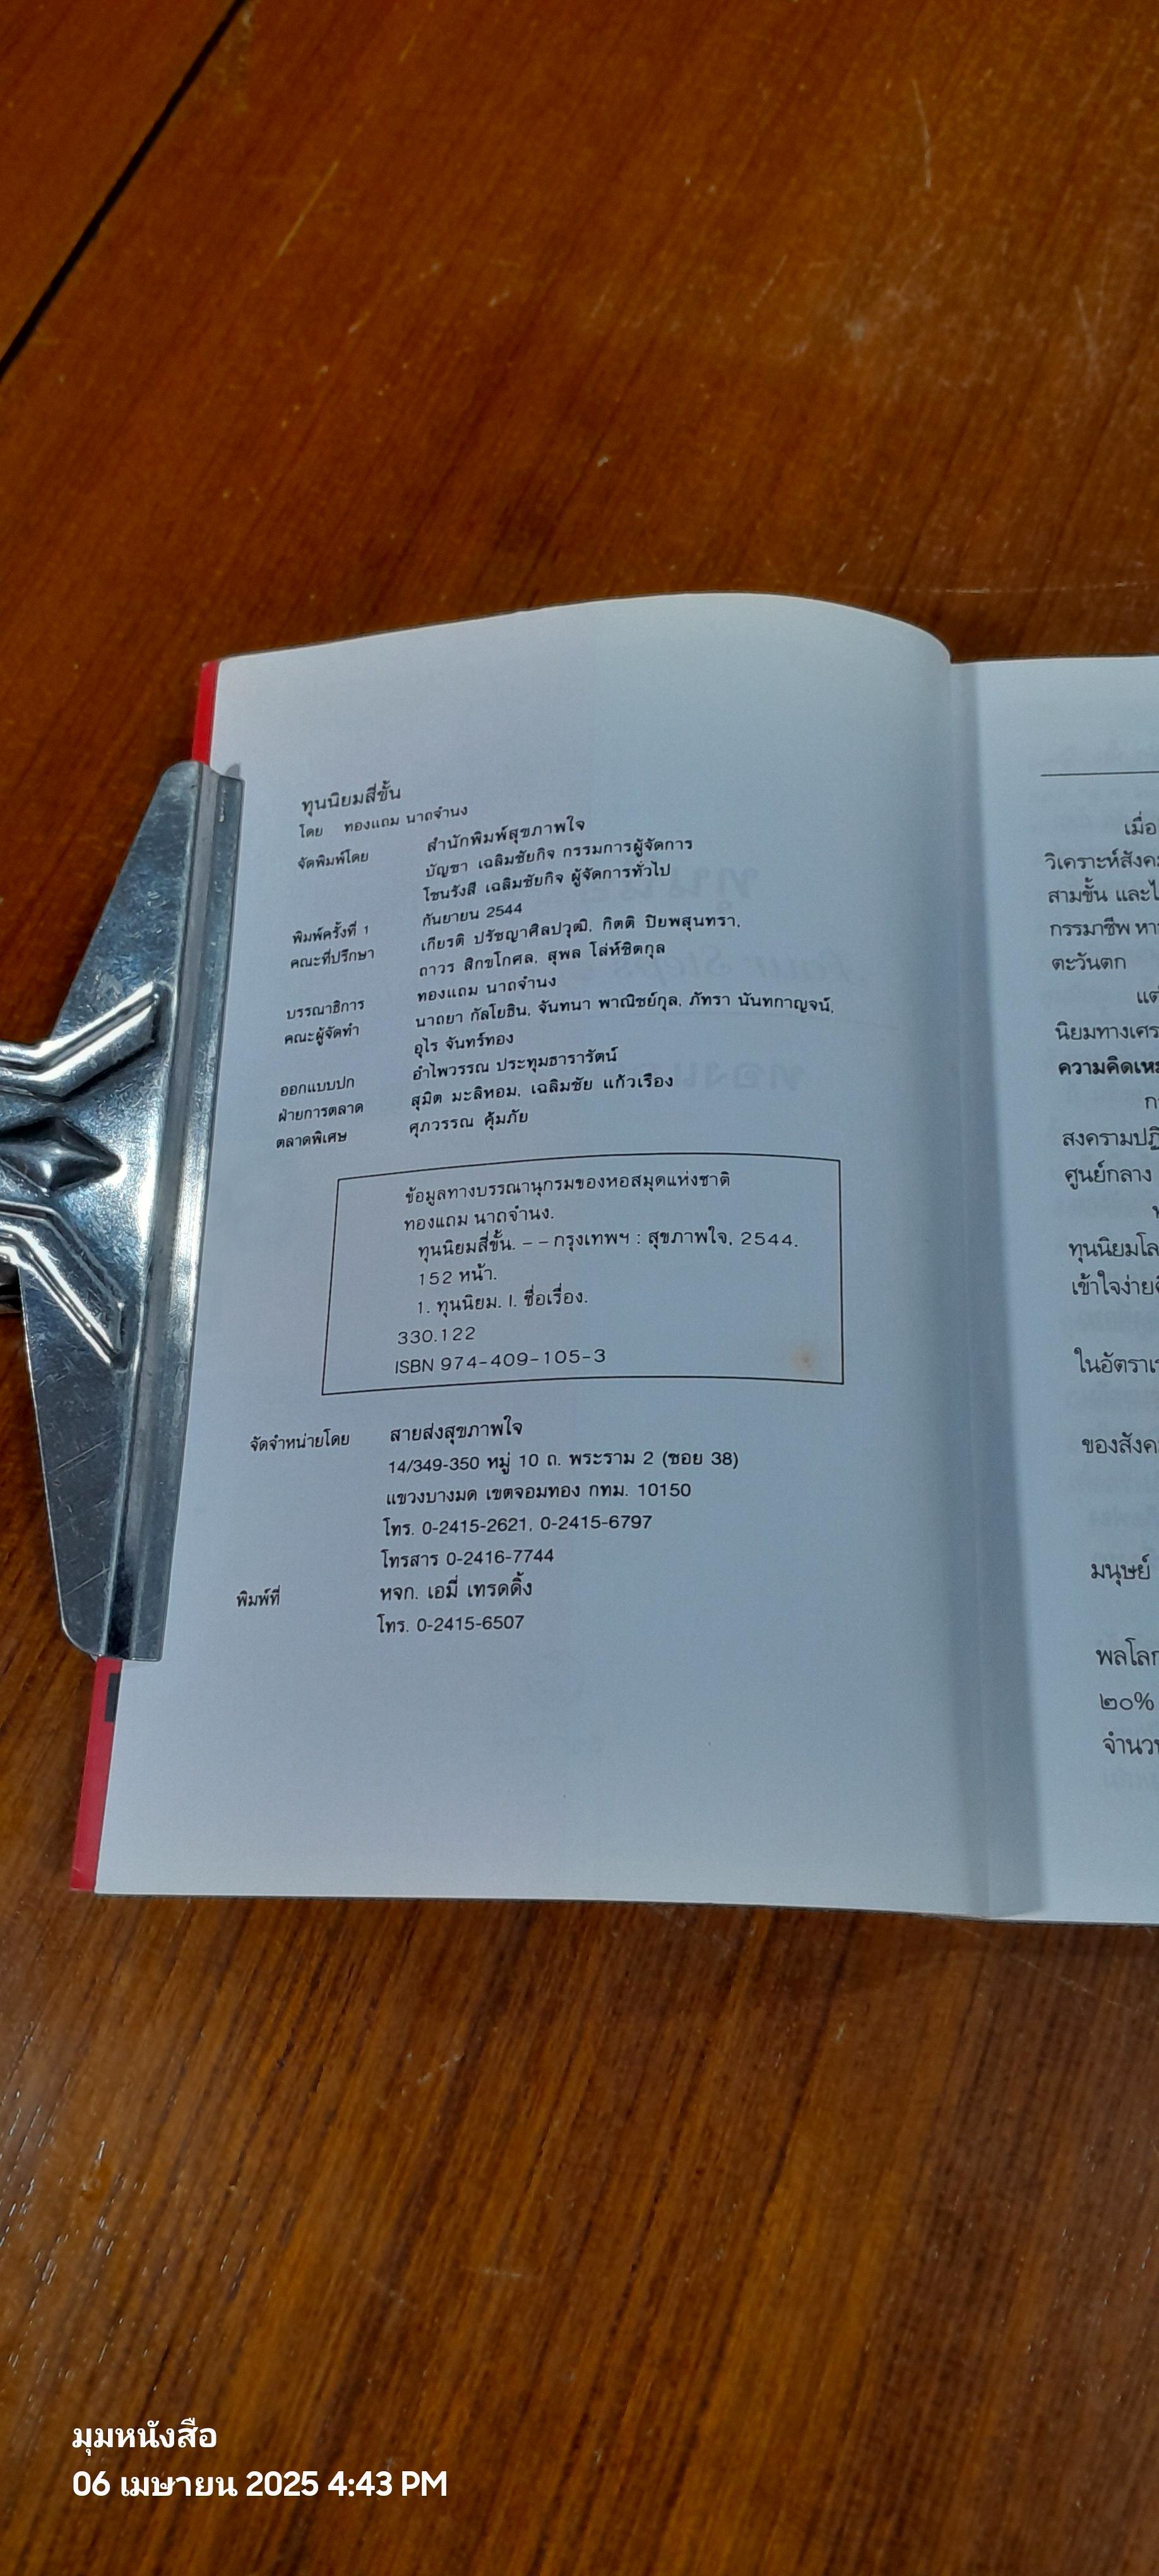 ทุนนิยมสี่ขั้น
โดย ทองแถม นาถจำนง
จัดพิมพ์โดย สำนักพิมพ์สุขภาพใจ
บัญชา เฉลิมชัยกิจ กรรมการผู้จัดการ
โชนรังสี เฉลิมชัยกิจ ผู้จัดการทั่วไป
พิมพ์ครั้งที่ 1 กันยายน 2544
คณะที่ปรึกษา เกียรติ ปรัชญาศิลปวุฒิ, กิตติ ปิยพสุนทรา,
ถาวร สิกขโกศล, สุพล โล่ห์ชิตกุล
บรรณาธิการ ทองแถม นาถจำนง
คณะผู้จัดทำ นาถยา กัลโยธิน, จันทนา พาณิชย์กุล, ภัทรา นันทกาญจน์,
อุไร จันทร์ทอง
ออกแบบปก อำไพวรรณ ประทุมธารารัตน์
ฝ่ายการตลาด สุมิต มะลิหอม, เฉลิมชัย แก้วเรือง
ตลาดพิเศษ ศุภวรรณ คุ้มภัย
ข้อมูลทางบรรณานุกรมของหอสมุดแห่งชาติ
ทองแถม นาถจำนง.
ทุนนิยมสี่ขั้น. – – กรุงเทพฯ : สุขภาพใจ, 2544.
152 หน้า.
1. ทุนนิยม. I. ชื่อเรื่อง.
330.122
ISBN 974-409-105-3
จัดจำหน่ายโดย สายส่งสุขภาพใจ
14/349-350 หมู่ 10 ถ. พระราม 2 (ซอย 38)
แขวงบางมด เขตจอมทอง กทม. 10150
โทร. 0-2415-2621, 0-2415-6797
โทรสาร 0-2416-7744
พิมพ์ที่ หจก. เอมี่ เทรดดิ้ง
โทร. 0-2415-6507
เมื่อ
วิเคราะห์สังค
สามขั้น และ
กรรมาชีพ
ตะวันตก
แต่
นิยมทางเศร
ความคิดเห
ก
สงครามปฏิ
ศูนย์กลาง
ทุนนิยมโล
เข้าใจง่าย
ในอัตราเ
ของสังค
มนุษย์
พลโลก
๒๐%
จำนว
มุมหนังสือ
06 เมษายน 2025 4:43 PM